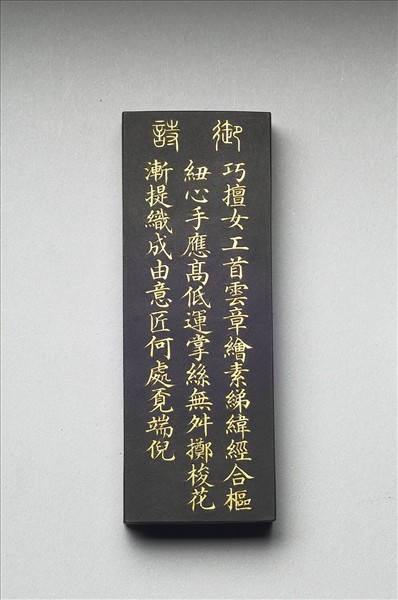 御詩
巧擅女工首雲章繪素綈緯經合樞
紐心手應髙低運掌絲無舛擲梭花
漸提織成由意匠何處覔端倪